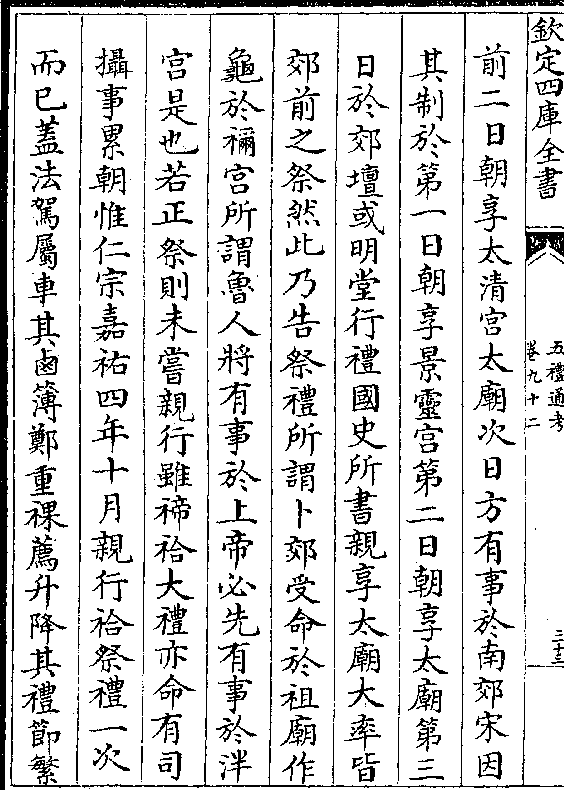 欽定四庫全書
五禮通考
卷九十二
三十三
前二日朝享太清宫太廟次日方有事於南郊宋因
其制於第一日朝享景靈宫第二日朝享太廟第三
日於郊壇或明堂行禮國史所書親享太廟大率皆
郊前之祭然此乃告祭禮所謂卜郊受命於祖廟作
龜於禰宫所謂魯人將有事於上帝必先有事於泮
宫是也若正祭則未嘗親行雖禘祫大禮亦命有司
攝事累朝惟仁宗嘉祐四年十月親行祫祭禮一次
而已蓋法駕屬車其鹵簿鄭重祼薦升降其禮節繁